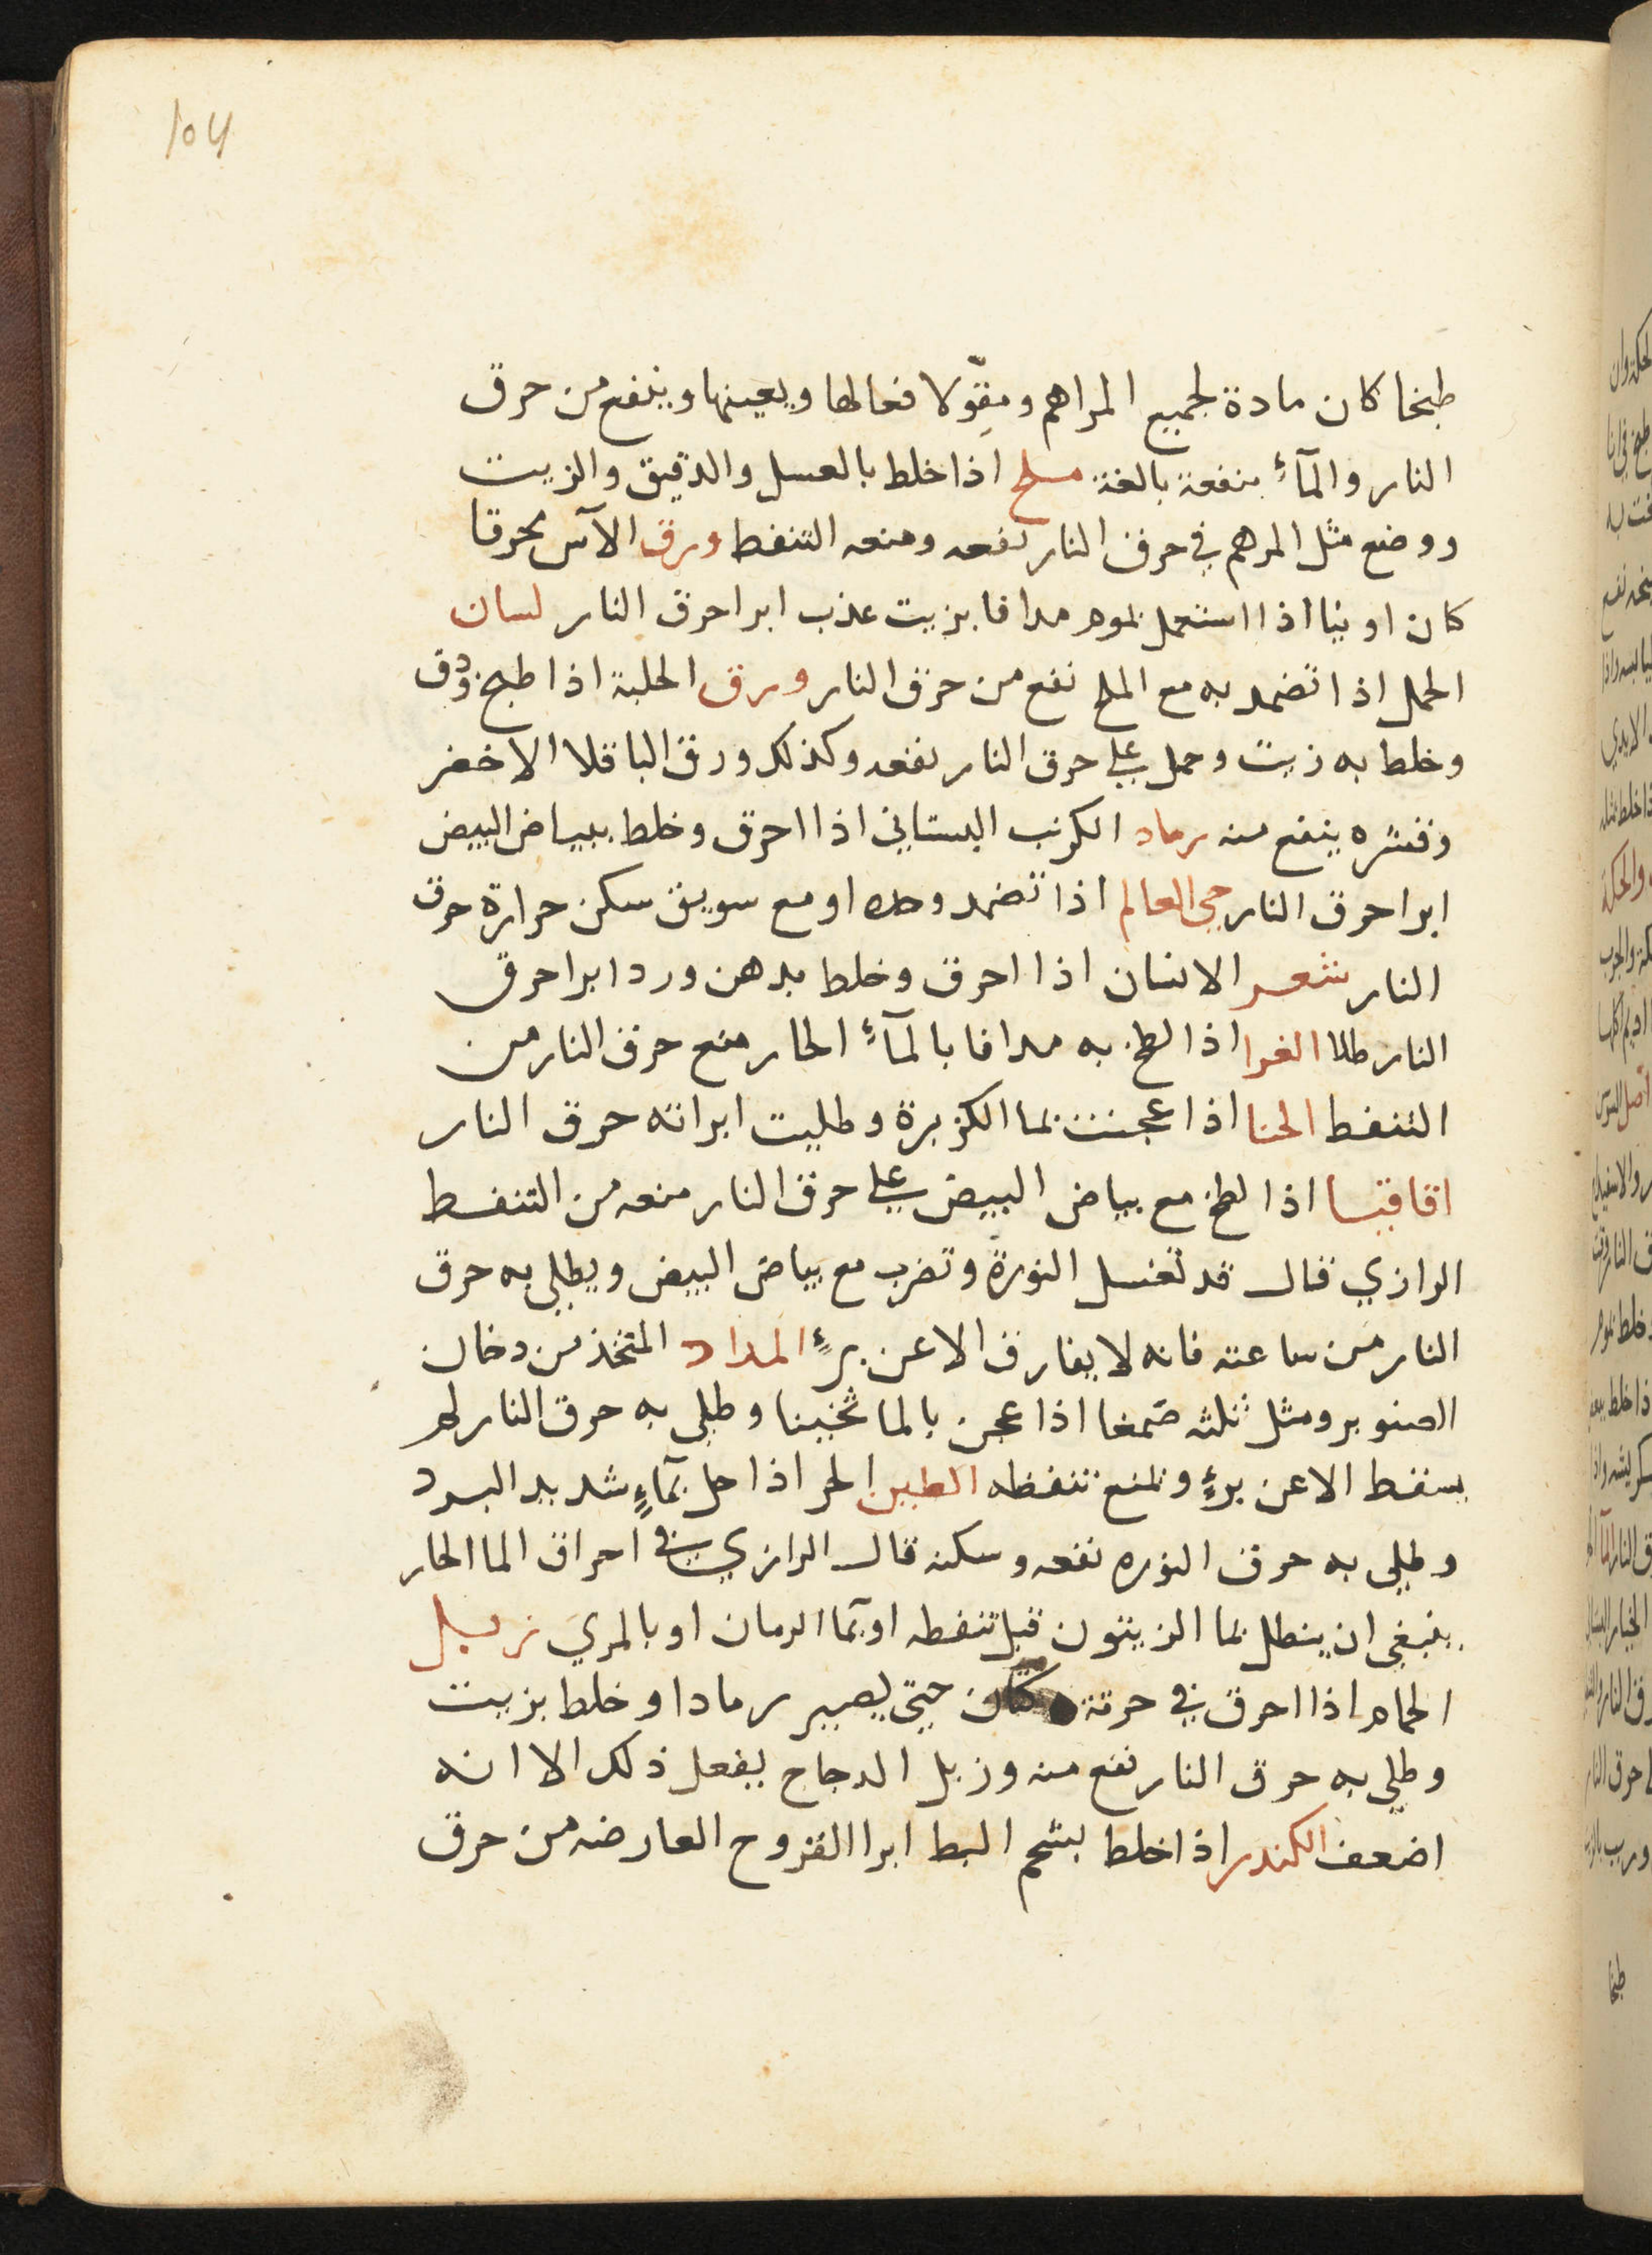 طبخا كان مادة لجميع المراهم ومقوّلا فعالها ويعينها وينفع من حرق
النار والمآء منفعة بالغة ملح اذا خلط بالعسل والدقيق والزيت
ووضع مثل المرهم في حرق النار نفعه ومنعه التنفط ورق الآس محرقا
كان او نيا اذا استعمل بموم مدافا بزيت عذب ابرا حرق النار لسان
الحمل اذا تضمد به مع الملح نفع من حرق النار ورق الحلبة اذا طبخ ودق
وخلط به زيت وحمل على حرق النار نفعه وكذلك ورق الباقلا الاخضر
وقشره ينفع منه رماد الكرنب البستاني اذا احرق وخلط ببياض البيض
ابرا حرق النار حي العالم اذا تضمد وحده او مع سويق سكن حرارة حرق
النار شعر الانسان اذا احرق وخلط بدهن ورد ابرا حرق
النار طلا الغرا اذا لطخ به مدافا بالمآء الحار منع حرق النار من
التنفط الحنا اذا عجنت بما الكزبرة وطليت ابراته حرق النار
اقاقيا اذا لطخ مع بياض البيض على حرق النار منعه من التنفط
الرازي قال قد تغسل النورة وتضرب مع بياض البيض ويطلى به حرق
النار من ساعته فانه لا يفارق الا عن برءٍ المداد المتخذ من دخان
الصنوبر ومثل ثلثه صمغا اذا عجن بالما ثخينا وطلي به حرق النار لم
يسقط الا عن برءٍ ويمنع تنفطه الطين الحر اذا حل بمآءٍ شديد البرد
وطلي به حرق النوره نفعه وسكنه قال الرازي في احراق الما الحار
ينبغي ان ينطل بما الزيتون قبل تنفطه او بما الرمان او بالمري زبل
الحمام اذا احرق في خرقة كتان حتى يصير رمادا وخلط بزيت
وطلي به حرق النار نفع منه وزبل الدجاج يفعل ذلك الا انه
اضعف الكندر اذا خلط بشحم البط ابرا القروح العارضه من حرق